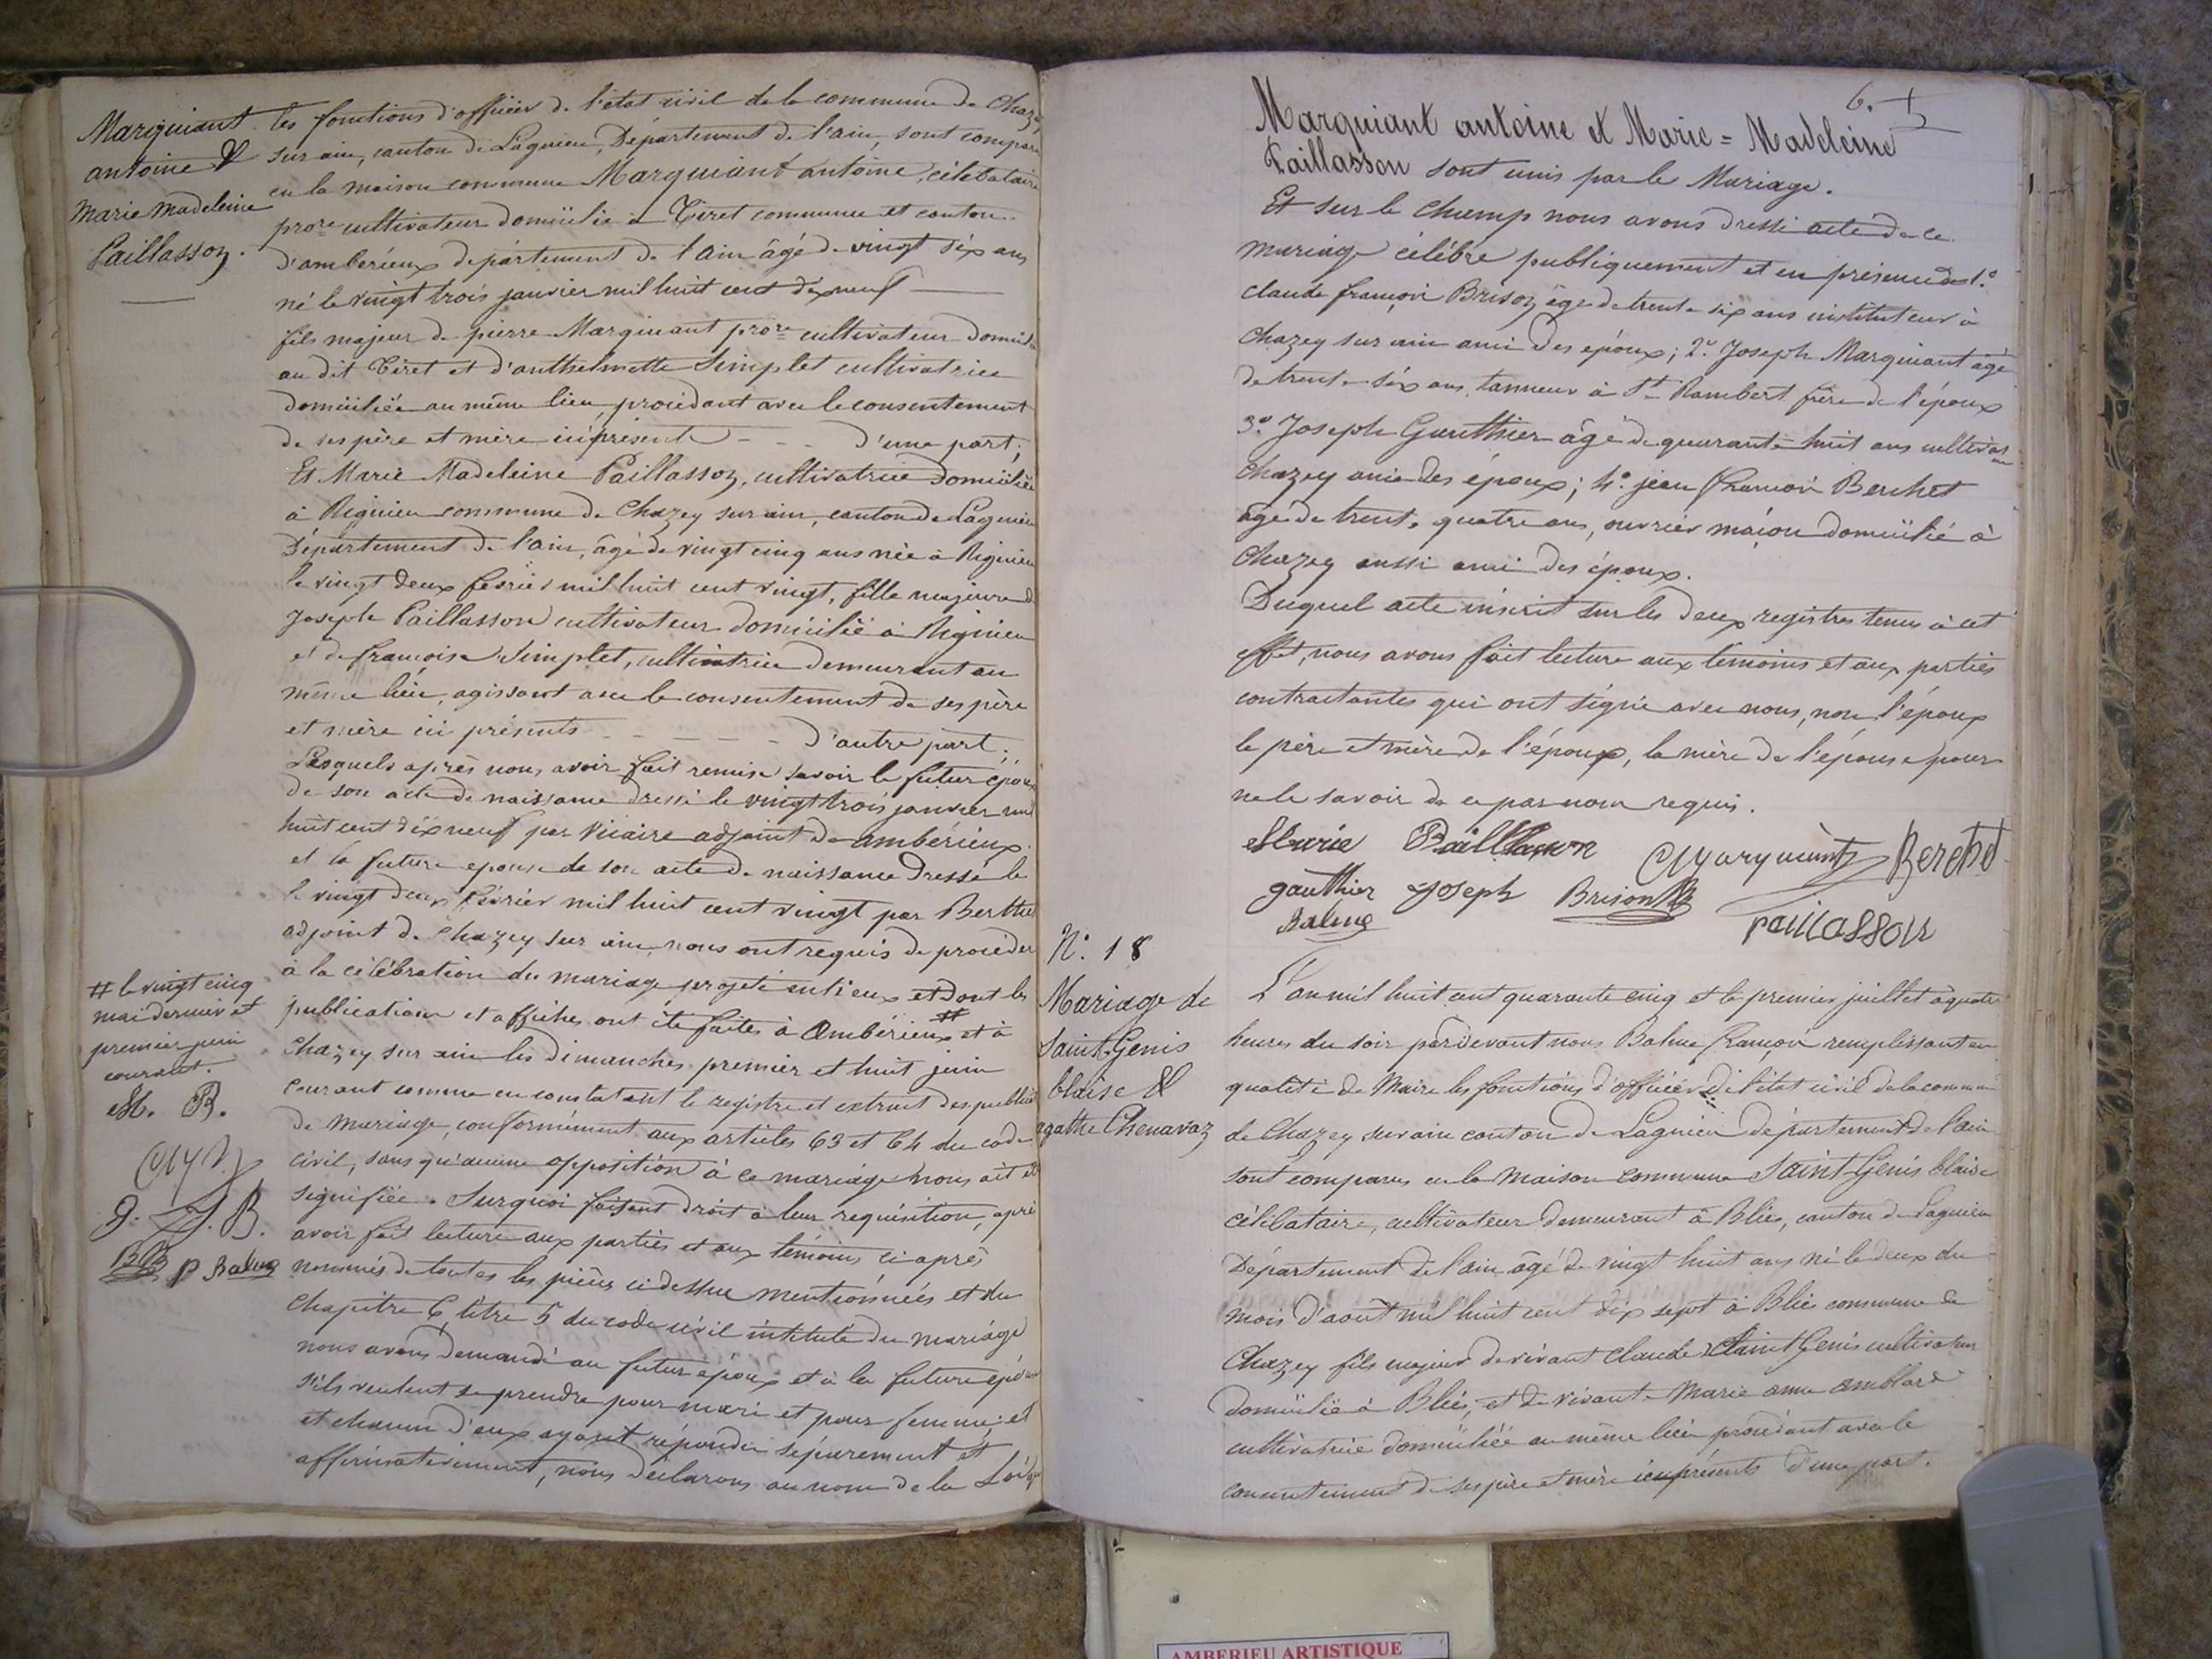 Marquiant
antoine &
Marie Madeleine
Paillasson.
les fonctions d'officier de l'état civil de la commune de Chazey
sur ain, canton de Lagnieu, Département de l'ain, sont comparu
en la maison commune Marquiant antoine, célibataire
prop.re cultivateur domicilié à Tiret commune et canton
d'ambérieux département de l'Ain âgé de vingt six ans
né le vingt trois janvier mil huit cent dix neuf
fils majeur de pierre Marquiant prop.re cultivateur domicilié
au dit Tiret et d'anthelmette Simplet cultivatrice
domiciliée au même lieu, procédant avec le consentement
de ses père et mère ici présents - - - d'une part;
Et Marie Madeleine Paillasson, cultivatrice domiciliée
à Rignieu commune de Chazey sur ain, canton de Lagnieu
Département de l'ain, âgé de vingt cinq ans née à Rignieu
le vingt deux février mil huit cent vingt, fille majeure de
Joseph Paillasson cultivateur domicilié à Rignieu
et de françoise Simplet, cultivatrice demeurant au
même lieu, agissant avec le consentement de ses père
et mère ici présents - - - - - d'autre part.
Lesquels après nous avoir fait remise savoir le futur époux
de son acte de naissance dressé le vingt trois janvier mil
huit cent dix neuf par Vicaire adjoint de ambérieux
et la future epouse de son acte de naissance dressé le
le vingt deux février mil huit cent vingt par Berthet
adjoint de Chazey sur ain, nous ont requis de procéder
à la célébration du mariage projeté entr'eux et dont les
publications et affiches ont été faites à Ambérieux # et à
Chazey sur ain les dimanches premier et huit juin
courant comme en constatent le registre et extrait des publicat
de mariage, conformément aux articles 63 et 64 du code
civil, sans qu'aucune opposition à ce mariage nous ait été
signifiée. Surquoi faisant droit à leur requisition, après
avoir fait lecture aux parties et aux témoins ci après
nommés de toutes les pièces ci dessus mentionnées et du
Chapitre 6, titre 5 du code civil intitulé du mariage
nous avons demandé au futur époux et à la future épouse
s'ils veulent se prendre pour mari et pour femme; et
et chacun d'eux ayant répondu séparement et
affirmativement, nous déclarons au nom de la Loi que
# le vingt cinq
mai dernier et
premier juin
courant.
M. B.
G. J. B.
P Balme
6.
Marquiant antoine et Marie = Madeleine
Paillasson sont unis par le Mariage.
Et sur le champ nous avons dressé acte de ce
mariage célébré publiquement et en présence de 1.°
claude françois Brison âgé de trente six ans instituteur à
Chazey sur ain ami des époux; 2.° Joseph Marquiant âgé
de trente six ans, tanneur à St Rambert frère de l'époux
3.° Joseph Gauthier âgé de quarante huit ans cultivat
Chazey ami des époux; 4.° jean françois Berchet
âgé de trente quatre ans, ouvrier maçon domicilié à
Chazey aussi ami des époux.
Duquel acte inscrit sur les deux registres tenus à cet
effet, nous avons fait lecture aux témoins et aux parties
contractantes qui ont signé avec nous, non l'époux
le père et mère de l'époux, la mère de l'épouse pour
ne le savoir de ce par nous requis.
Marie Paillasson Marquiant Berchet
gauthier Joseph Brison
Balme paillasson
N.° 18
Mariage de
Saint Genis
blaise &
agathe Chenavaz
L'an mil huit cent quarante cinq et le premier juillet à quatre
heures du soir pardevant nous Balme françois remplissant en
qualité de Maire les fonctions d'officier de l'état civil de la commune
de Chazey sur ain canton de Lagnieu département de l'ain
sont comparus en la Maison commune Saint Genis blaise
célibataire, cultivateur demeurant à Blies, canton de Lagnieu
Département de l'ain âgé de vingt huit ans né le deux du
mois d'août mil huit cent dix sept à Blies commune de
Chazey fils majeur de vivant claude Saint Genis cultivateur
domicilié à Blies, et de vivante Marie anne amblard
cultivatrice domiciliée au même lieu procédant avec le
consentement de ses père et mère ici présents d'une part.
AMBERIEU ARTISTIQUE